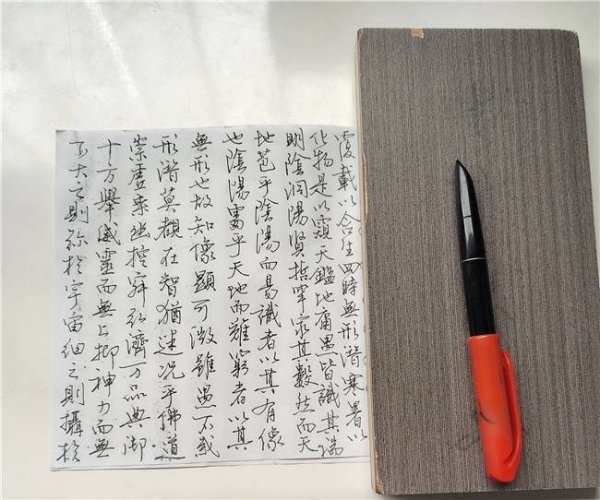 覆載以含生四時無形潛寒暑以
化物是以窺天鑑地庸愚皆識其端
明陰洞陽賢哲罕窮其數然而天
地苞乎陰陽而易識者以其有像
也陰陽處乎天地而難窮者以其
無形也故知像顯可徵雖愚不惑
形潛莫覩在智猶迷況乎佛道
崇虛乘幽控寂弘濟万品典御
十方舉威靈而無上抑神力而無
下大之則弥於宇宙細之則攝於